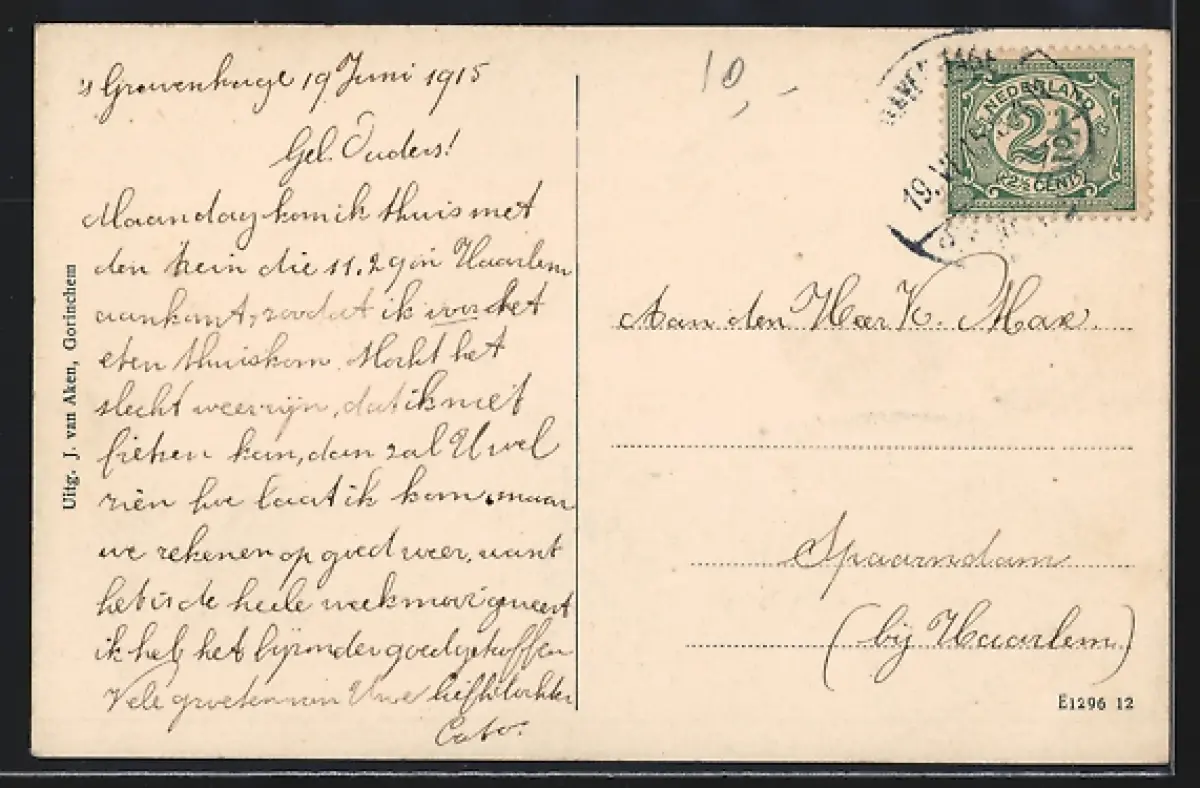 's Gravenhage 19 Juni 1915
Gel. Ouders!
Maandag kom ik thuis met
den trein die 11.29 in Haarlem
aankomt, zoodat ik voor het
eten thuiskom. Mocht het
slecht weer zijn, dat ik niet
fietsen kan, dan zal U wel
zien hoe laat ik kom, maar
we rekenen op goed weer, want
het is de heele week mooi geweest
ik heb het bijzonder goed getroffen
Vele groeten van Uwe liefh. dochter
Cato.
Uitg. J. van Aken, Gorinchem
10,-
NEDERLAND
2½
(2½ CENT)
19.VI.15
Aan den Heer K. Max.
Spaarndam
(bij Haarlem)
E1296 12